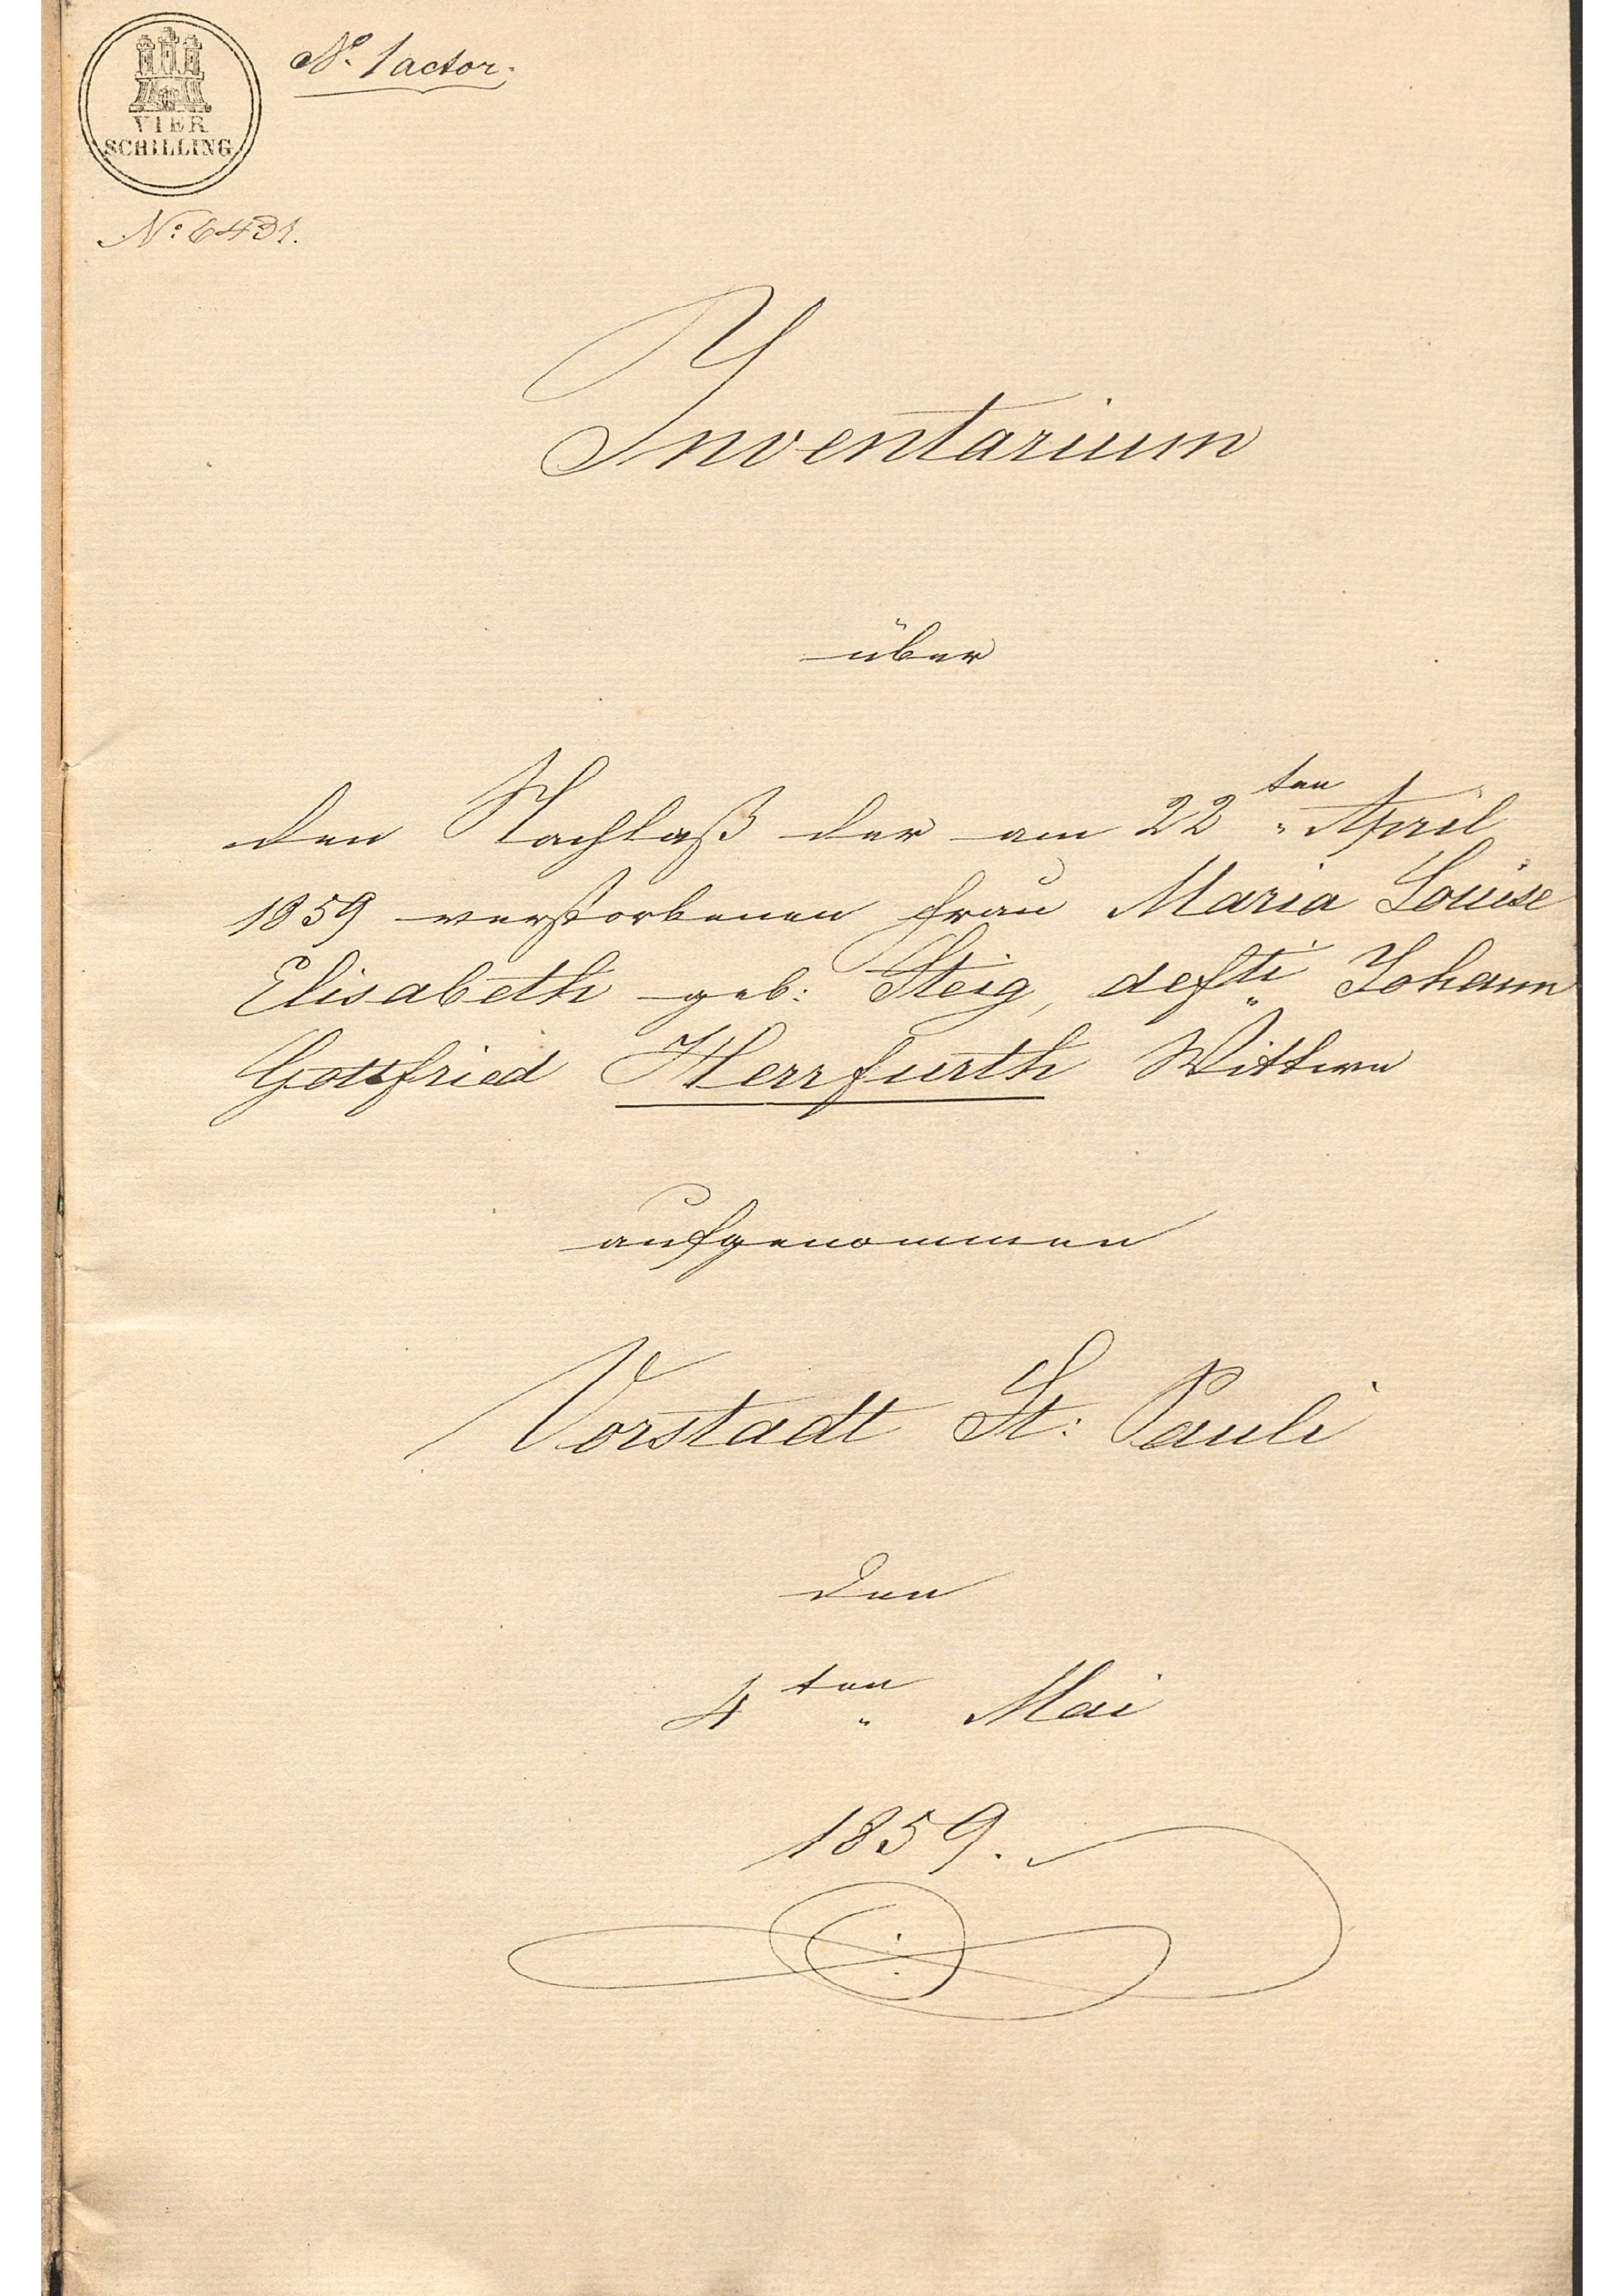 No. 1 actor.
VIER
SCHILLING
No: 6431.
Inventarium
über
den Nachlaß der am 22ten April
1859 verstorbenen Frau Maria Louise
Elisabeth geb: Steig, defti Johann
Gottfried Herrfurth Wittwe
aufgenommen
Vorstadt St: Pauli
den
4ten Mai
1859.